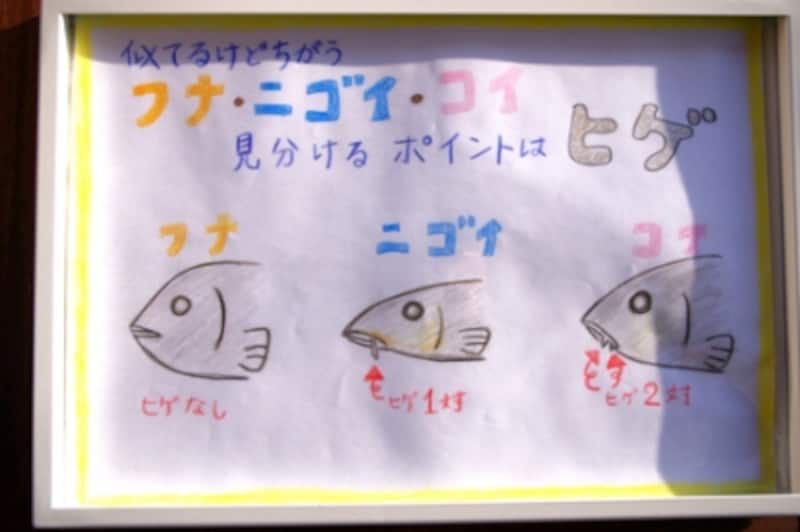 似てるけどちがう
フナ・ニゴイ・コイ
見分ける ポイントは ヒゲ
フナ ニゴイ コイ
ヒゲなし ヒゲ1対 ヒゲ2対